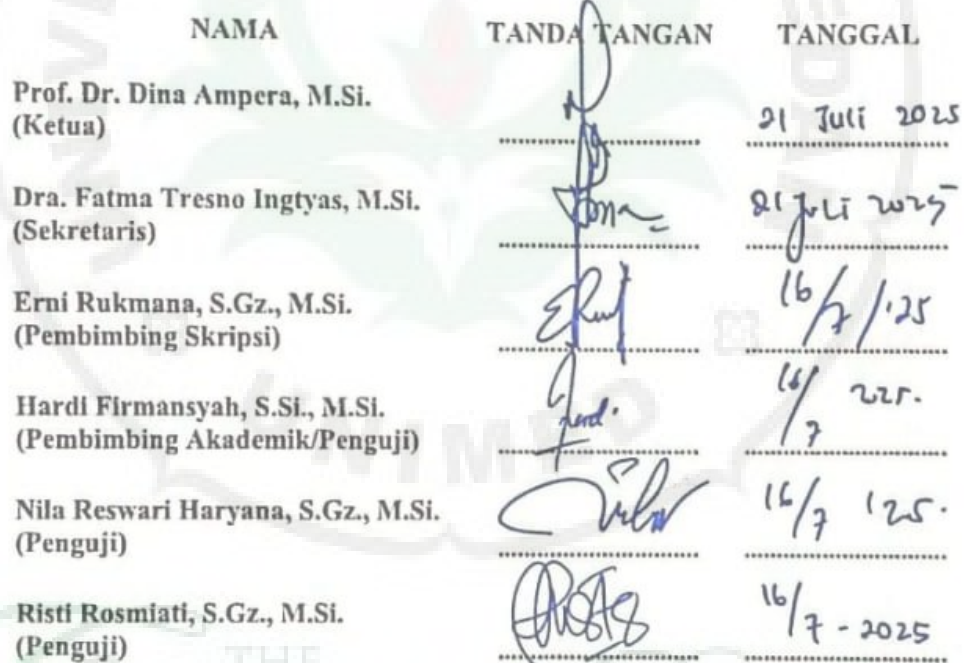 NAMA TANDA TANGAN TANGGAL
Prof. Dr. Dina Ampera, M.Si.
(Ketua) 21 Juli 2025
Dra. Fatma Tresno Ingtyas, M.Si.
(Sekretaris) 21 Juli 2025
Erni Rukmana, S.Gz., M.Si. 16/7/'25
(Pembimbing Skripsi)
Hardi Firmansyah, S.Si., M.Si. 16/7
(Pembimbing Akademik/Penguji)
Nila Reswari Haryana, S.Gz., M.Si. 16/7 '25.
(Penguji)
Risti Rosmiati, S.Gz., M.Si. 16/7 - 2025
(Penguji)
UNIMED
THE